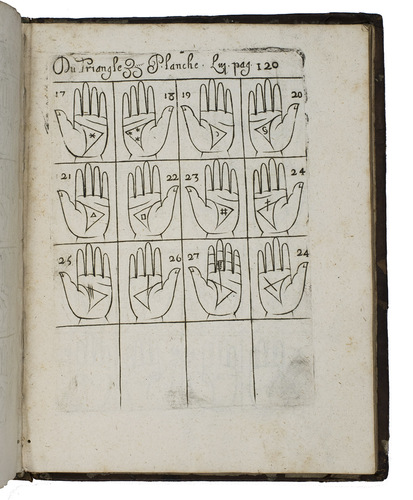 Du Triangle 35 Planche. Liv. pag 120
17 18 19 20
21 22 23 24
25 26 27 24